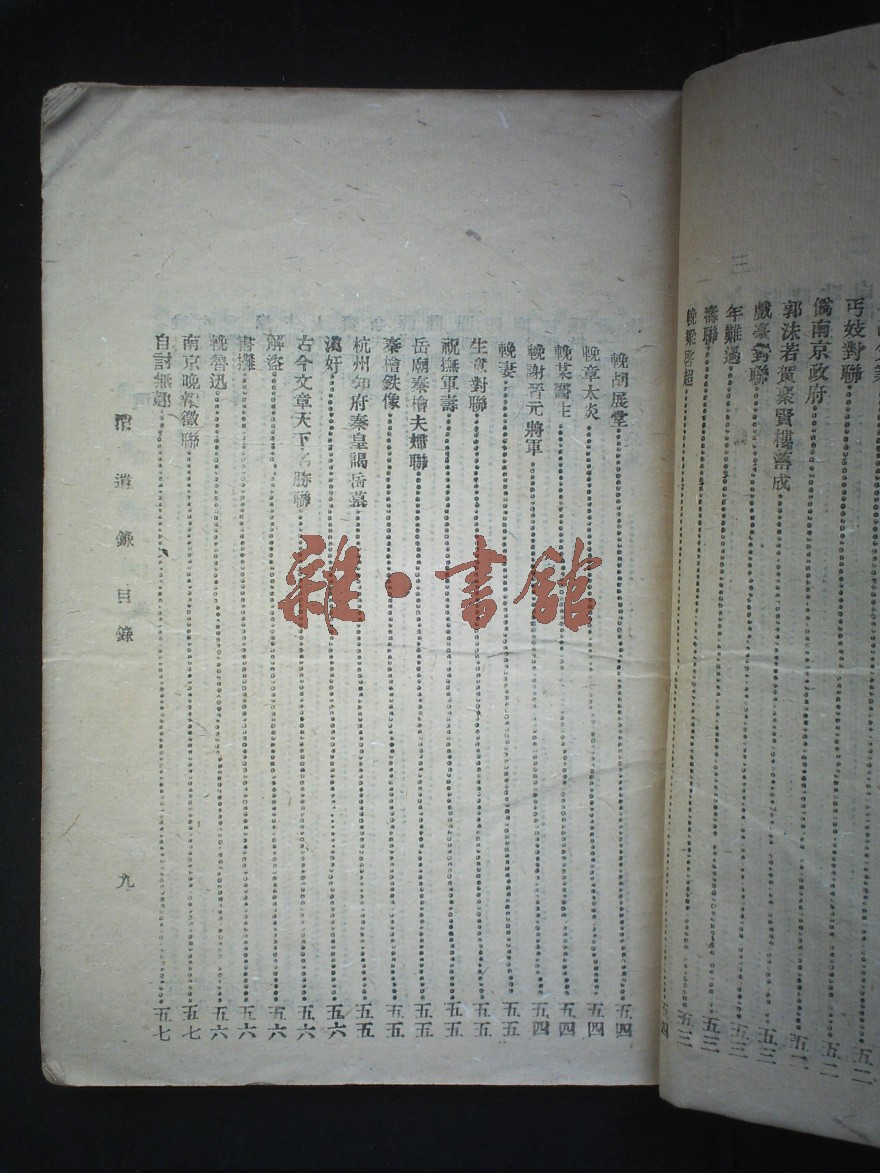 丐妓對聯……五二
僞南京政府……五二
郭沫若賀聚賢樓落成……五二
戲臺對聯……五三
年難過……五三
壽聯……五三
輓梁啓超……五四
輓胡展堂……五四
輓章太炎……五四
輓某醫生……五四
輓謝晉元將軍……五四
輓妻……五五
生意對聯……五五
祝撫軍壽……五五
岳廟秦檜夫婦聯……五五
秦檜鉄像……五五
杭州知府秦皇謁岳墓……五五
漢奸……五六
古今文章天下名勝聯……五六
解盜……五六
書攤……五六
輓魯迅……五六
南京晚報徵聯……五七
自討無趣……五七
遺錄目錄
九
雜·書館